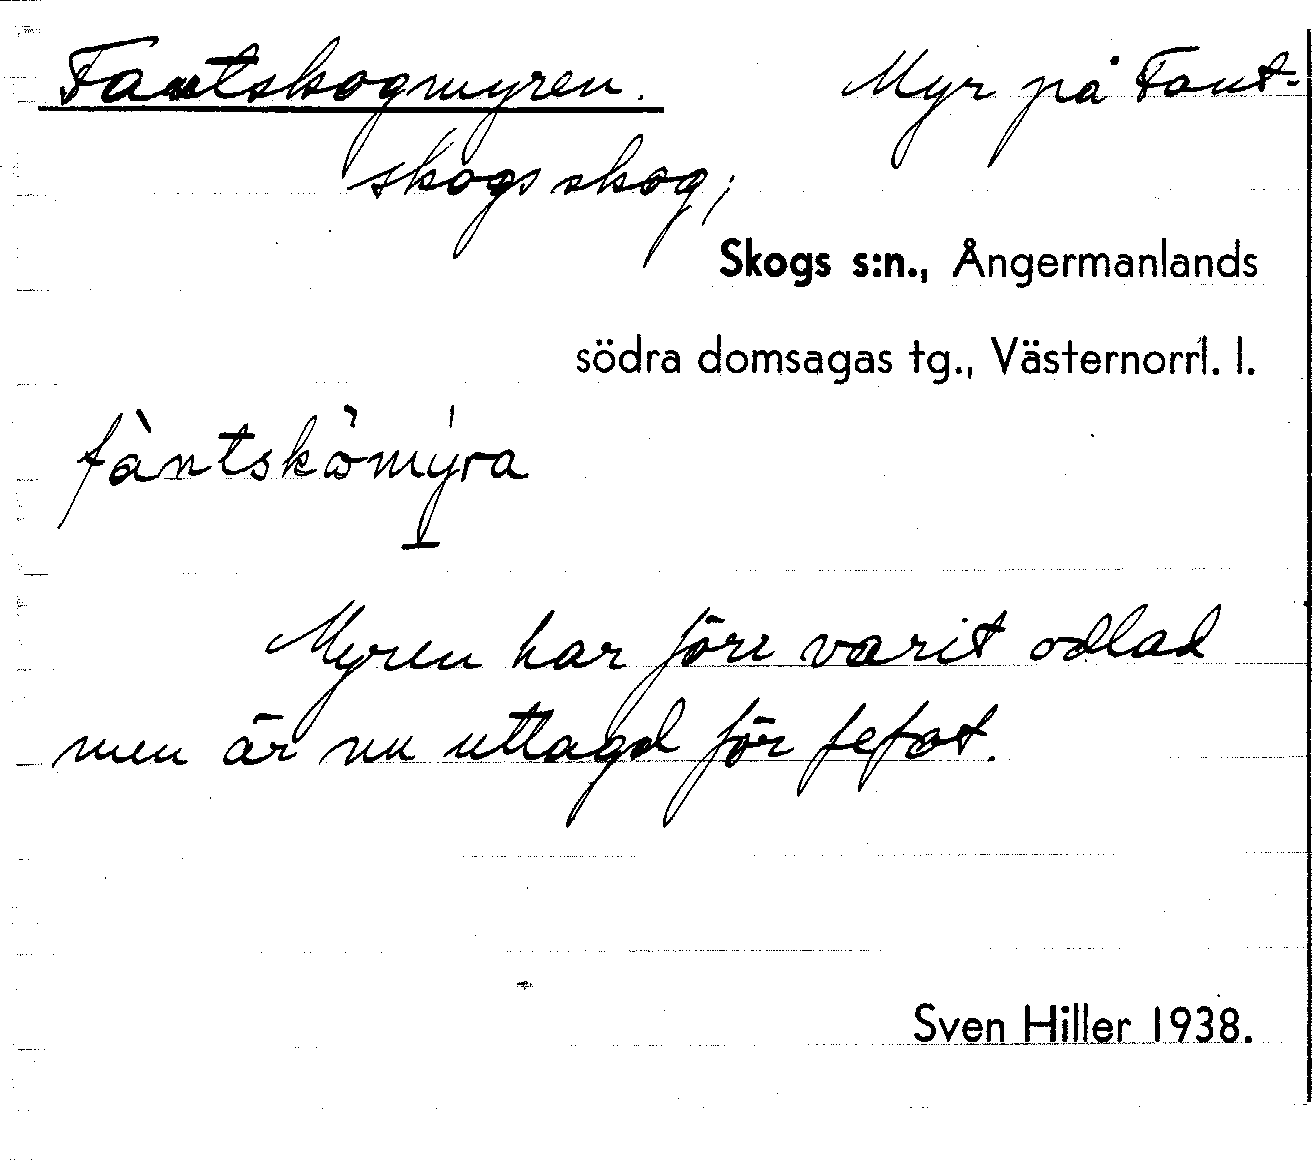 Fantskogmyren. Myr på Fant-
skogs skog;
Skogs s:n., Ångermanlands
södra domsagas tg., Västernorrl. l.
fàntskòmýra
Myren har förr varit odlad
men är nu uttagd för fefot.
Sven Hiller 1938.